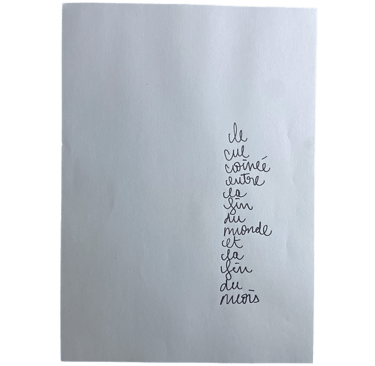 le
cul
coincé
entre
la
fin
du
monde
et
la
fin
du
mois